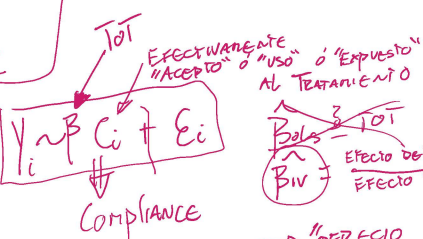 ToT
EFECTIVAMENTE
"ACEPTO" ó "USO" ó "EXPUESTO"
AL TRATAMIENTO
Yi ~ β Ci + εi
COMPLIANCE
β̂OLS ToT
β̂IV = EFECTO DE
EFECTO